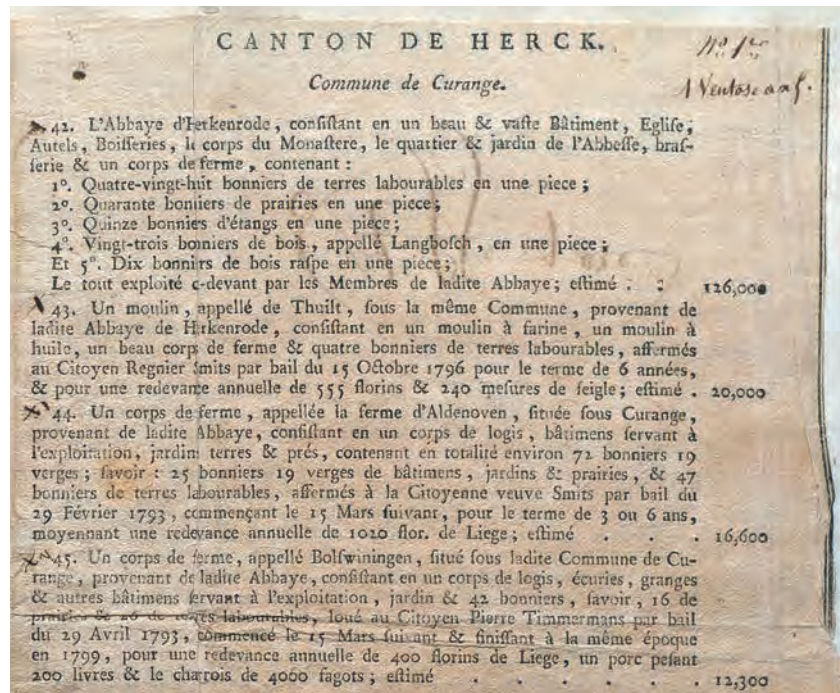 CANTON DE HERCK.
Nº. 1er
Commune de Curange.
1 Ventose an 5.
42. L'Abbaye d'Herkenrode, conſiſtant en un beau & vaſte Bâtiment, Egliſe,
Autels, Boiſeries, le corps du Monaſtere, le quartier & jardin de l'Abbeſſe, braſ-
ſerie & un corps de ferme, contenant :
1º. Quatre-vingt-huit bonniers de terres labourables en une piece ;
2º. Quarante bonniers de prairies en une piece ;
3º. Quinze bonniers d'étangs en une piece ;
4º. Vingt-trois bonniers de bois, appellé Langboſch, en une piece ;
Et 5º. Dix bonnirs de bois raſpe en une piece ;
Le tout exploité c-devant par les Membres de ladite Abbaye ; eſtimé : : 126,000
43. Un moulin, appellé de Thuilt, ſous la même Commune, provenant de
ladite Abbaye de Herkenrode, conſiſtant en un moulin à farine, un moulin à
huile, un beau corps de ferme & quatre bonniers de terres labourables, affermés
au Citoyen Regnier Smits par bail du 15 Octobre 1796 pour le terme de 6 années,
& pour une redevance annuelle de 555 florins & 240 meſures de ſeigle ; eſtimé . 20,000
44. Un corps de ferme, appellée la ferme d'Aldenoven, ſituée ſous Curange,
provenant de ladite Abbaye, conſiſtant en un corps de logis, bâtimens ſervant à
l'exploitation, jardins terres & prés, contenant en totalité environ 72 bonniers 19
verges ; ſavoir : 25 bonniers 19 verges de bâtimens, jardins & prairies, & 47
bonniers de terres labourables, affermés à la Citoyenne veuve Smits par bail du
29 Février 1793, commençant le 15 Mars ſuivant, pour le terme de 3 ou 6 ans,
moyennant une redevance annuelle de 1020 flor. de Liege ; eſtimé . . . 16,600
45. Un corps de ferme, appellé Bolſwiningen, ſitué ſous ladite Commune de Cu-
range, provenant de ladite Abbaye, conſiſtant en un corps de logis, écuries, granges
& autres bâtimens ſervant à l'exploitation, jardin & 42 bonniers, ſavoir, 16 de
prairies & 26 de terres labourables, loué au Citoyen Pierre Timmermans par bail
du 29 Avril 1793, commencé le 15 Mars ſuivant & finiſſant à la même époque
en 1799, pour une redevance annuelle de 400 florins de Liege, un porc peſant
200 livres & le charrois de 4000 fagots ; eſtimé . . . . . . 12,300